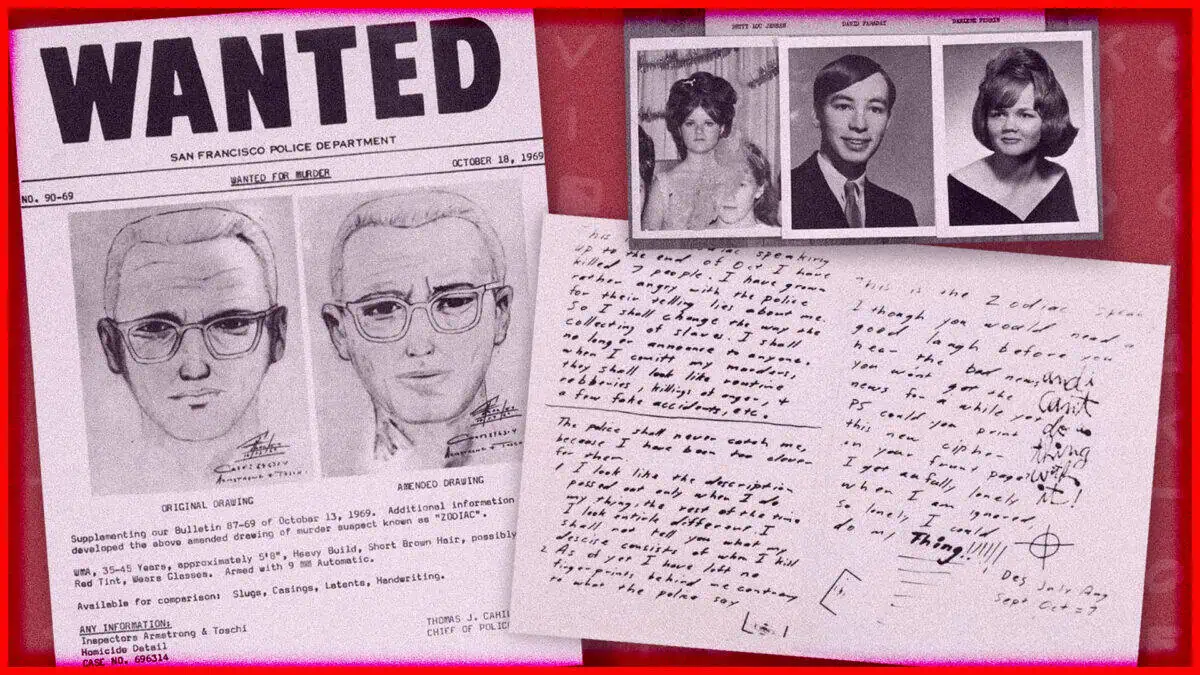 WANTED
SAN FRANCISCO POLICE DEPARTMENT
NO. 90-69 WANTED FOR MURDER OCTOBER 18, 1969
ORIGINAL DRAWING AMENDED DRAWING
Supplementing our Bulletin 87-69 of October 13, 1969. Additional information
developed the above amended drawing of murder suspect known as "ZODIAC".
WMA, 35-45 Years, approximately 5'8", Heavy Build, Short Brown Hair, possibly
Red Tint, Wears Glasses. Armed with 9 MM Automatic.
Available for comparison: Slugs, Casings, Latents, Handwriting.
ANY INFORMATION:
Inspectors Armstrong & Toschi
Homicide Detail
CASE NO. 696314
THOMAS J. CAHI
CHIEF OF POLIC
BETTY LOU JENSEN DAVID FARADAY DARLENE FERRIN
speaking
up to the end of Oct I have
killed 7 people. I have grown
rather angry with the police
for their telling lies about me.
So I shall change the way the
collecting of slaves. I shall
no longer announce to anyone.
when I comitt my murders,
they shall look like routine
robberies, killings of anger, +
a few fake accidents, etc.
The police shall never catch me,
because I have been too clever
for them.
1 I look like the description
passed out only when I do
my thing, the rest of the time
I look entirle different. I
shall not tell you what my
descise consists of when I kill
2 As of yet I have left no
fingerprints behind me contrary
to what the police say
This is the Zodiac speaking
I though you would need a
good laugh before you
hear the bad news
you won't get the
news for a while yet
PS could you print
this new cipher
on your frunt page?
I get awfully lonely
when I am ignored,
so lonely I could
do my Thing!!!!!!
and i
cant
do a
thing
with
it!
Des July Aug
Sept Oct = 7